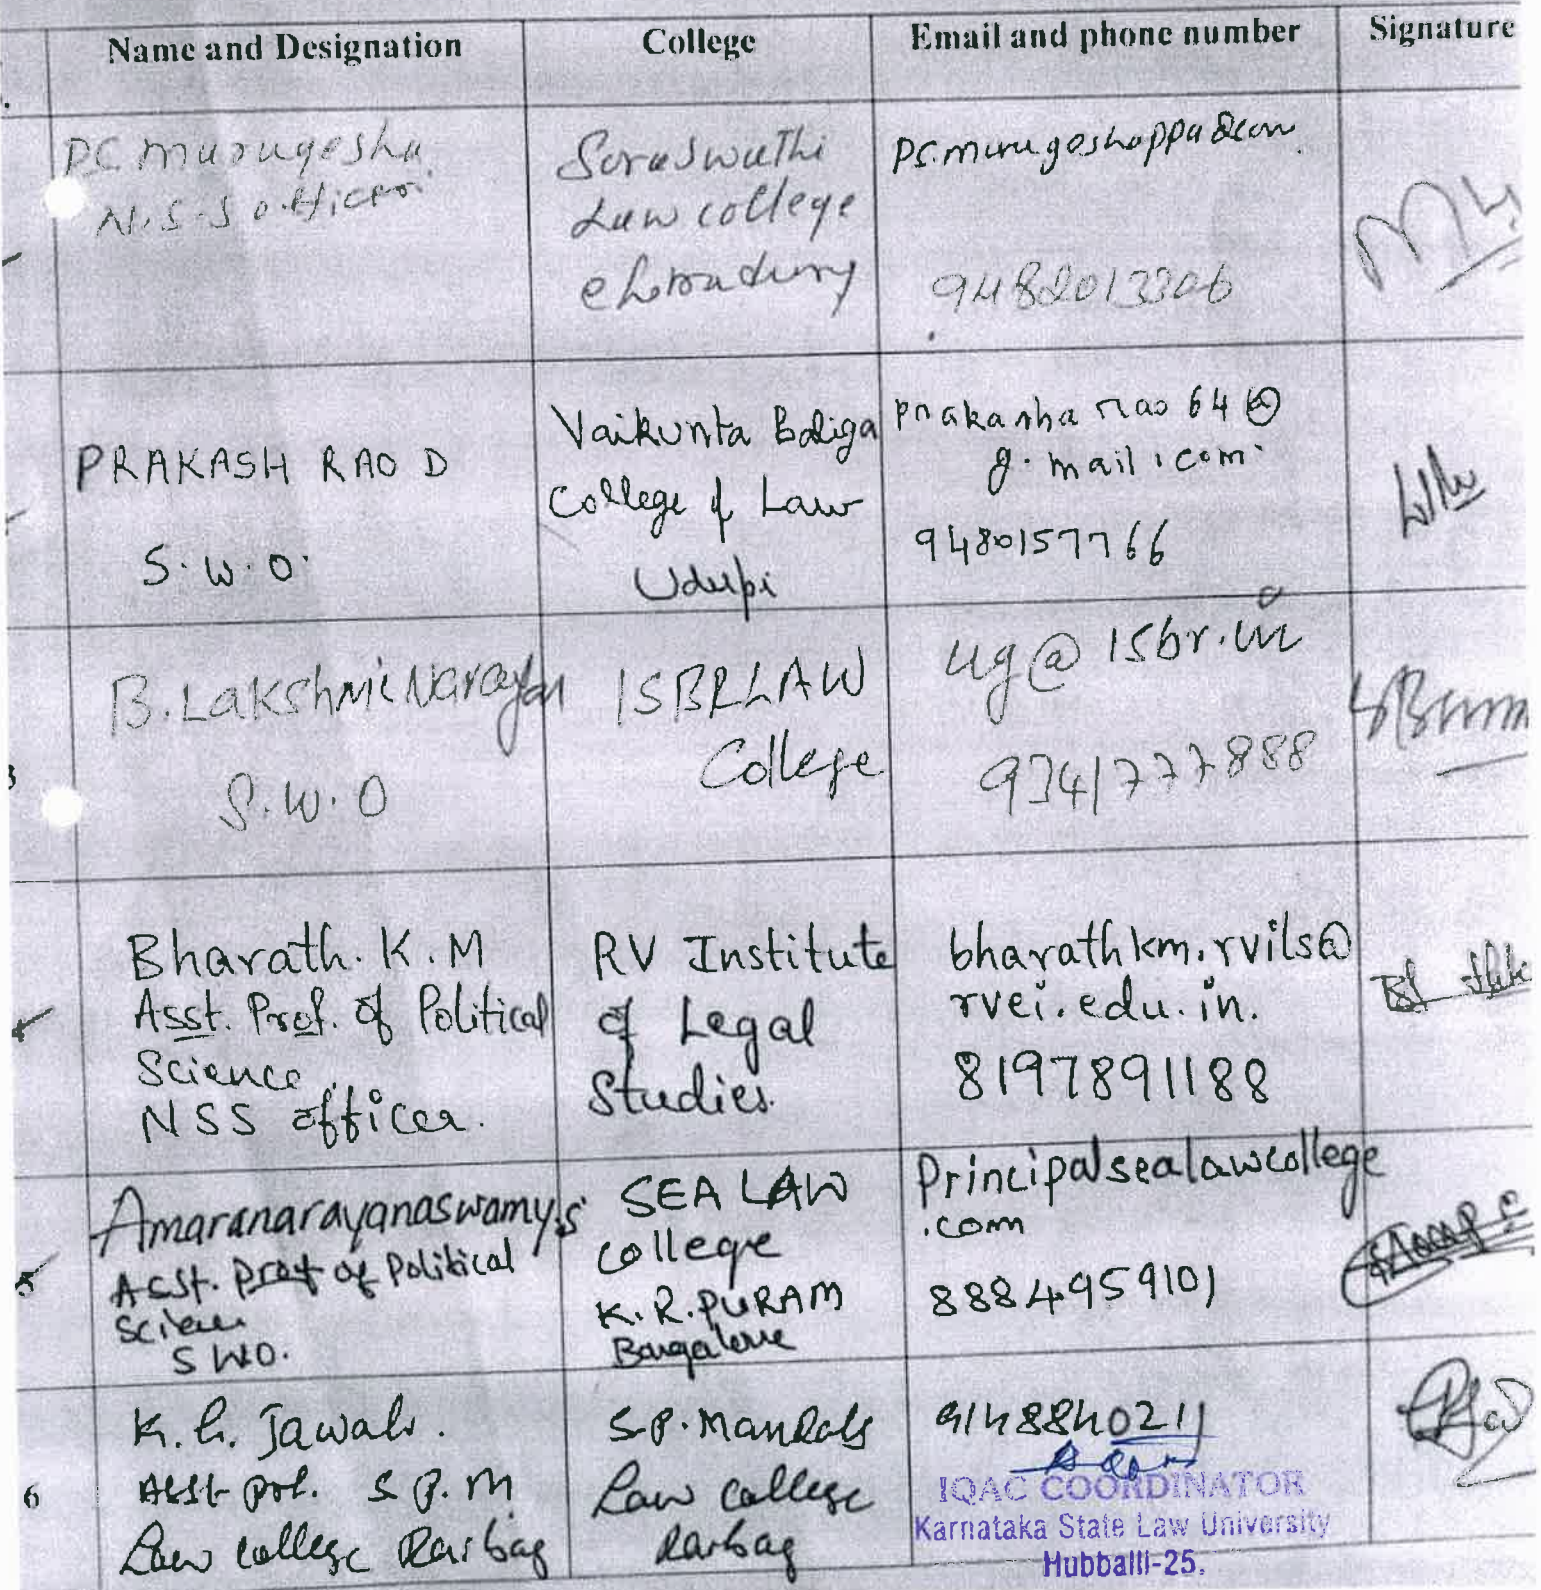 Name and Designation
College
Email and phone number
Signature
P.C. Murugesha
N.S.S officer
Saraswathi
Law college
PRAKASH RAO D
S.W.O.
Vaikunta Baliga
College of Law
Udupi
prakasharao64@
g.mail.com
9480157766
B. Lakshmi Narayan
S.W.O
ISBR LAW
College
ug@isbr.in
9341777888
Bharath. K. M
Asst. Prof. of Political
Science
NSS officer.
RV Institute
of Legal
Studies.
bharathkm.rvils@
rvei.edu.in.
8197891188
Amaranarayanaswamy.s
Asst. Prof of Political
Science
SWO.
SEA LAW
college
K.R.PURAM
Bangalore
Principalsealawcollege
.com
8884959101
6
Jawali.
Asst prof. S.P.M
Law college Raibag
S.P. Mandals
Law college
Raibag
9148840211
IQAC COORDINATOR
Karnataka State Law University
Hubballi-25.